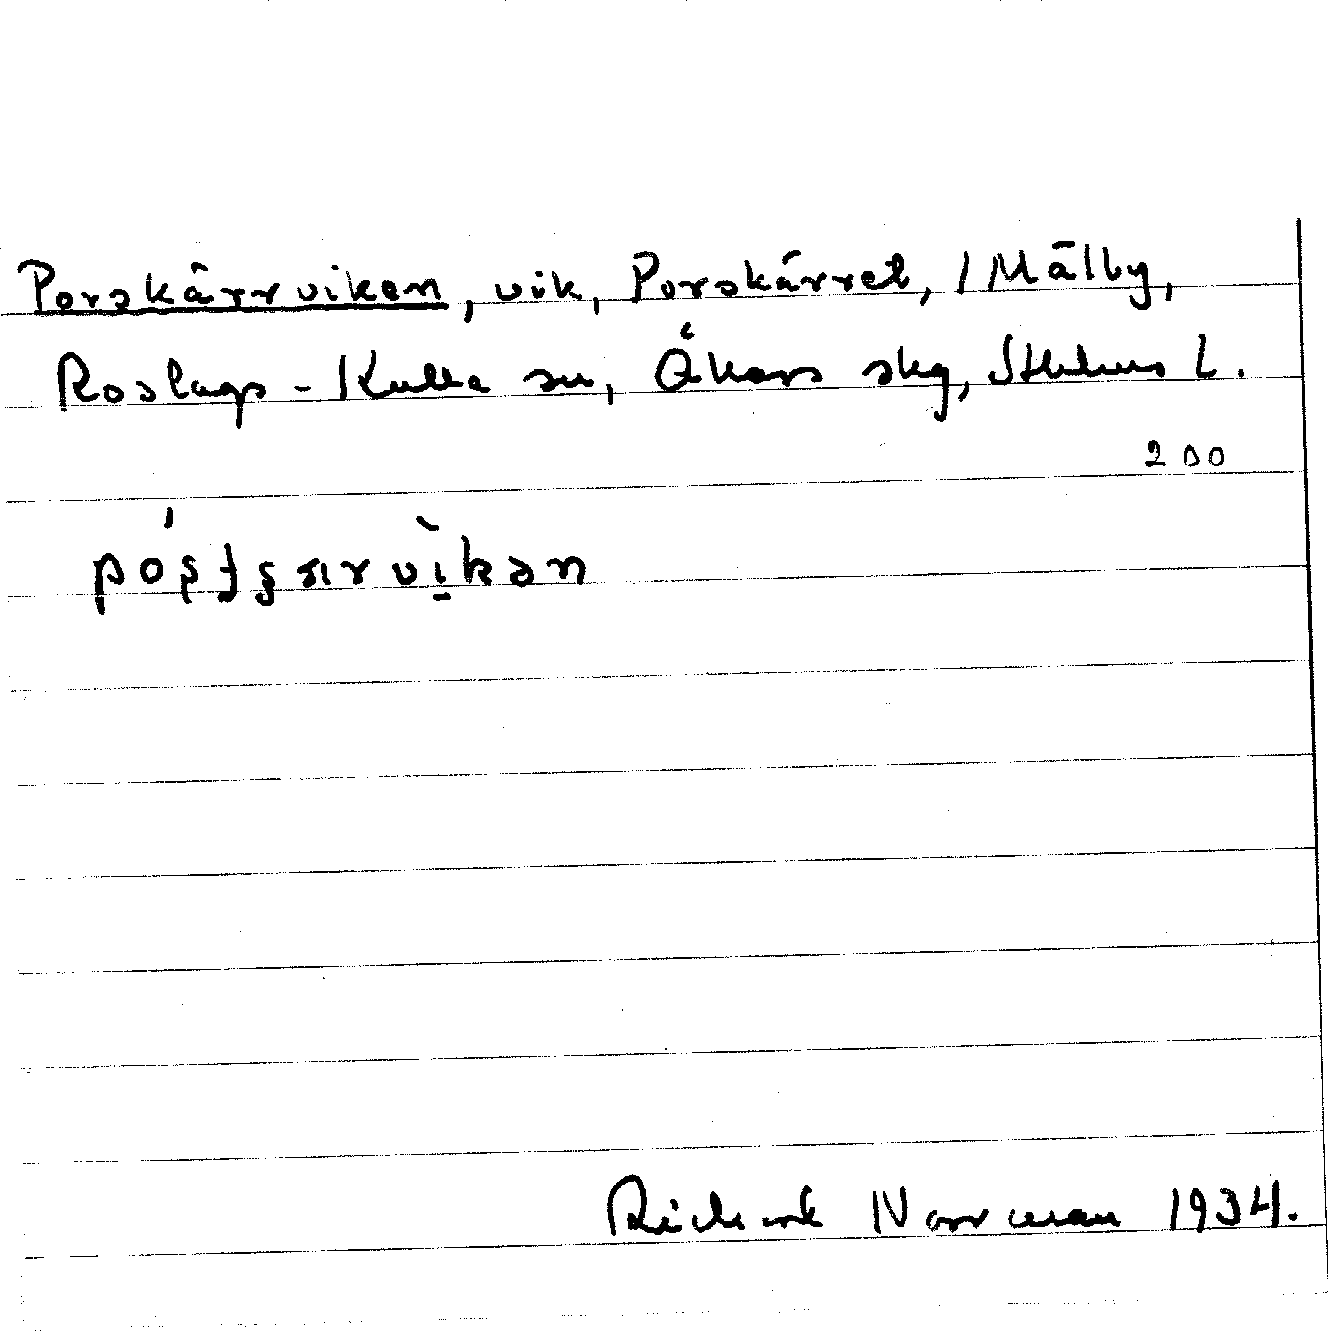 Porskärrviken, vik, Porskärret, / Mälby,
Roslags-Kulla sn, Åkers skg, Sthlms L.
200
Richard Norrman 1934.